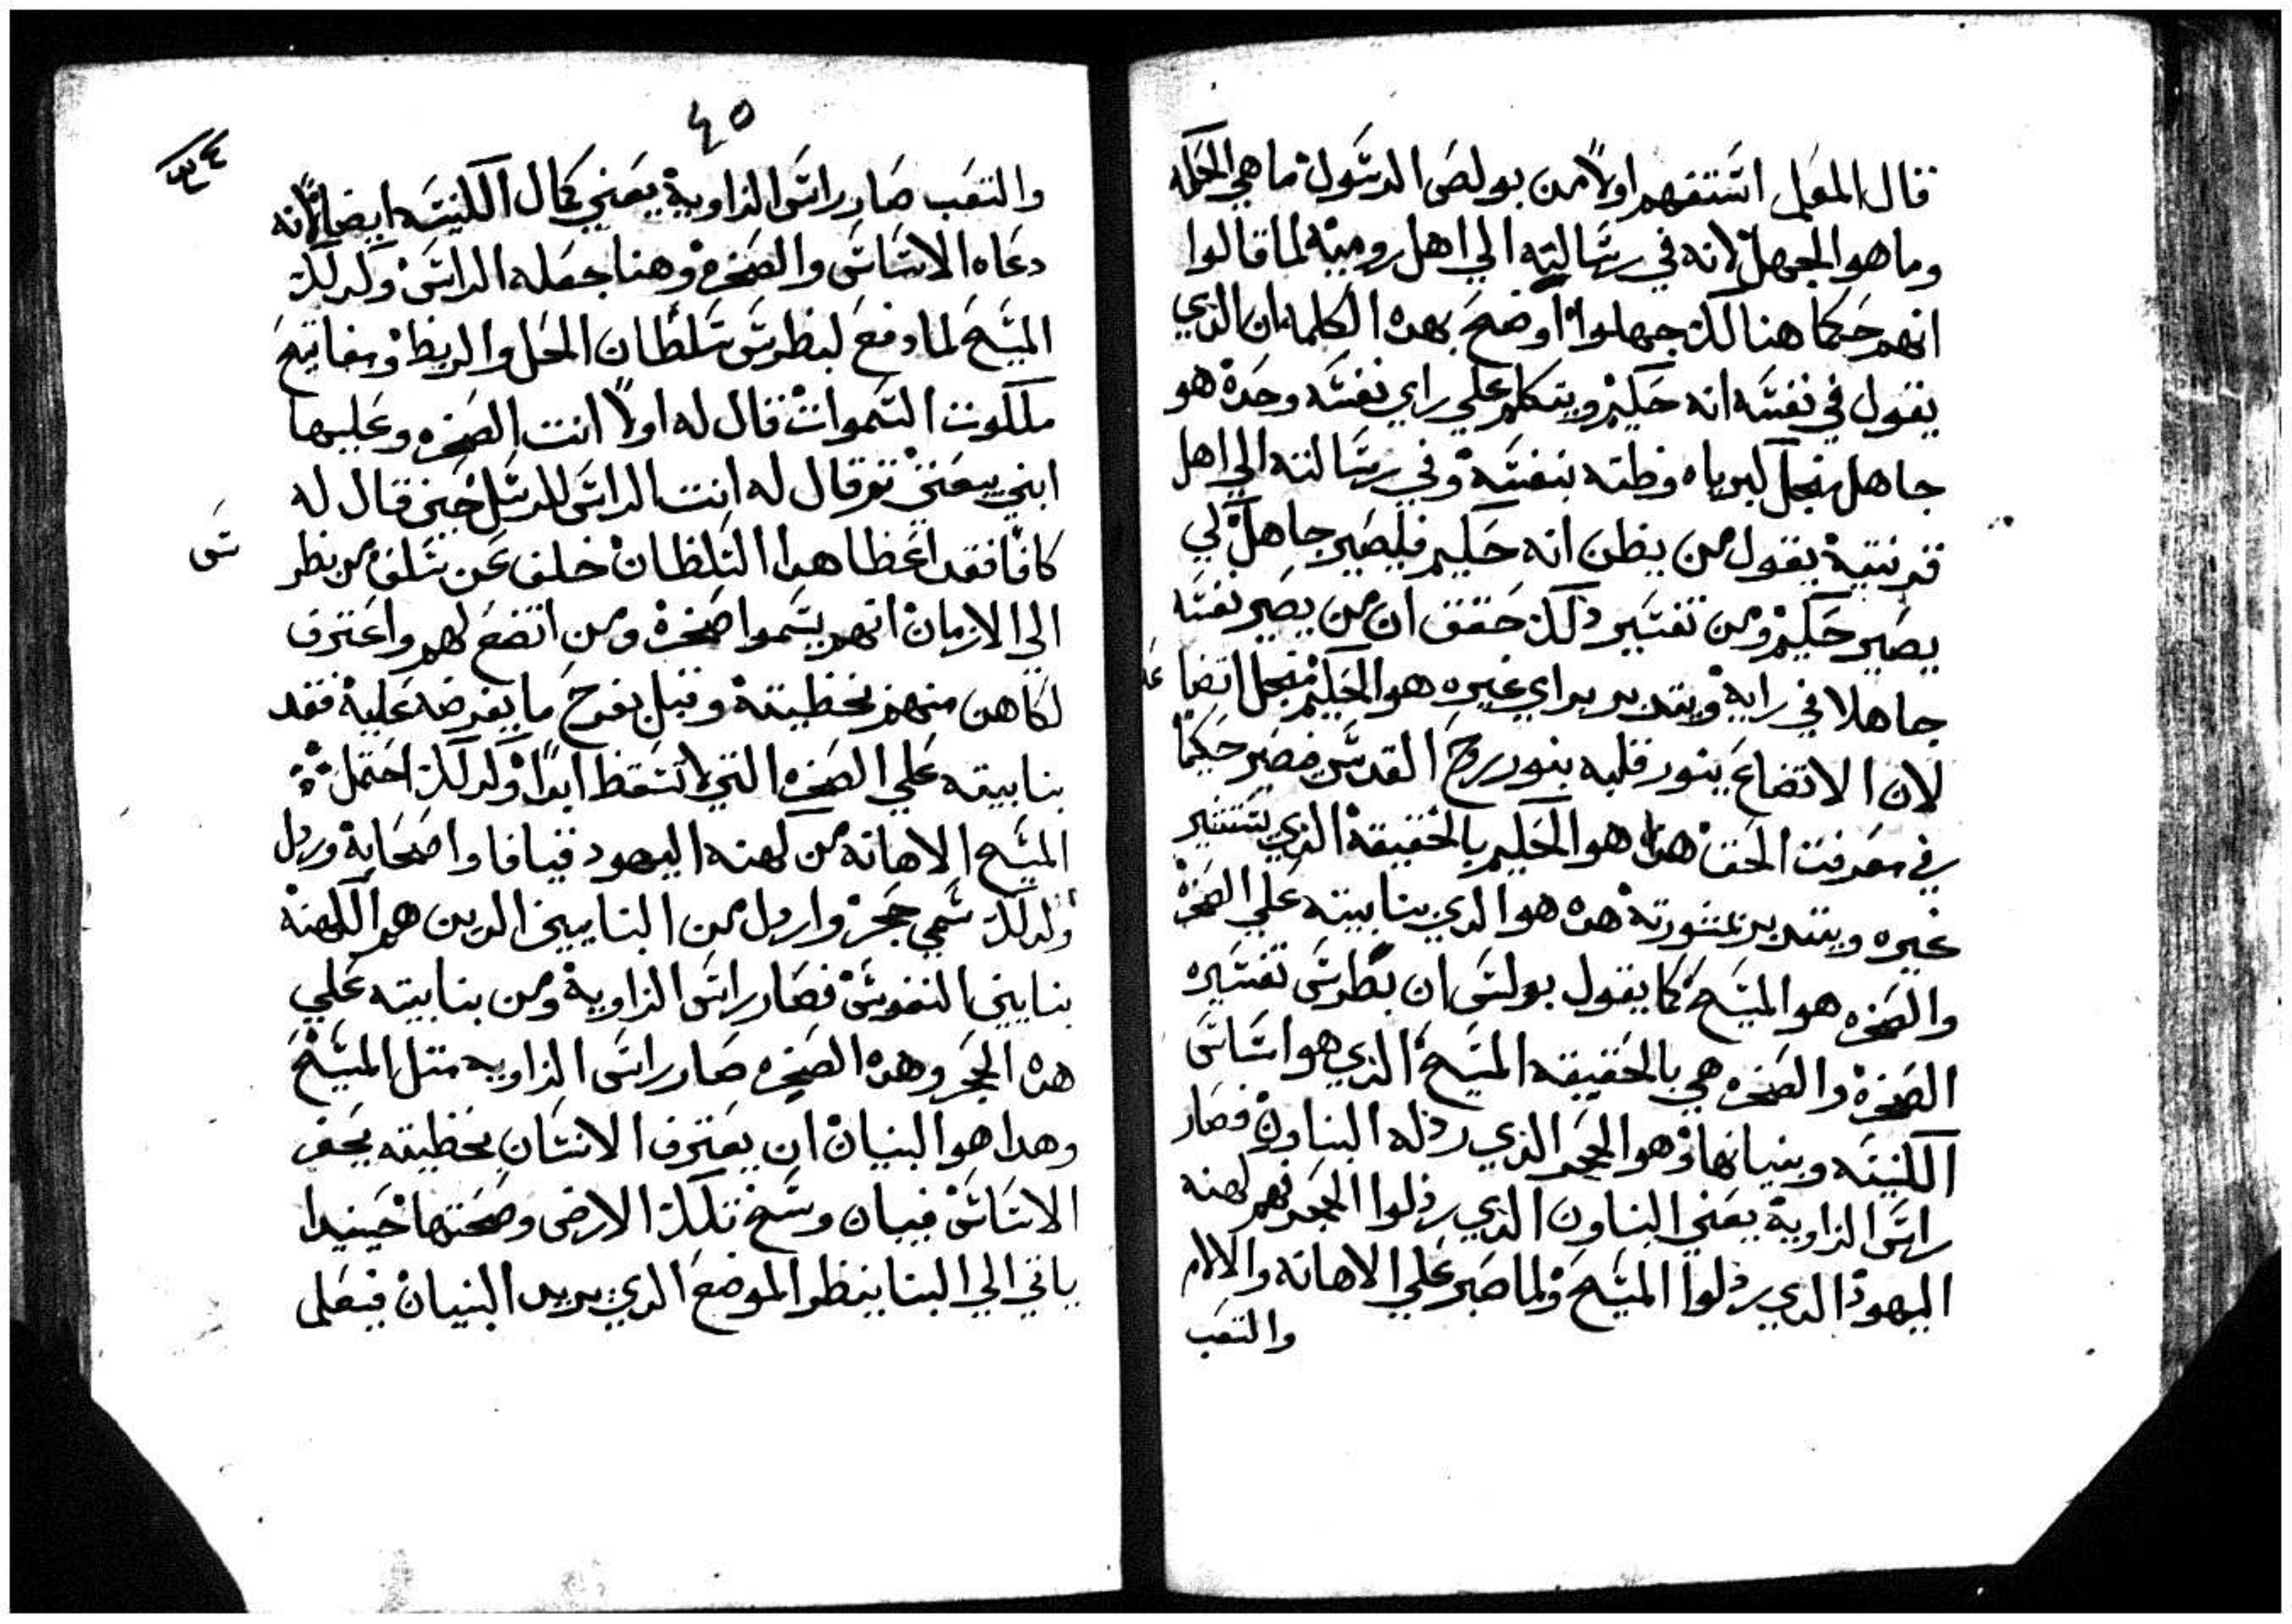 قال المعلم استفهم اولاً من بولص الرسول ما هي الحكمه
وما هو الجهل لانه في رسالته الي اهل روميه لما قالوا
انهم حكما هنالك جهلوا اوضح بهده الكلمات ان الذي
يقول في نفسه انه حكيم ويتكلم علي راي نفسه وحده هو
جاهل من اجل كبرياه وظنه بنفسه وفي رسالته الي اهل
قرنتية يقول من يظن انه حكيم فليصير جاهل لكي
يصير حكيم ومن تفسير دلك حقق ان من يصير نفسه
جاهلا في راية ويتدبر براي غيره هو الحكيم من اجل اتضا
عه
لان الاتضاع ينور قلبه بنور روح القدس فصير حكيماً
في معرفت الحق هدا هو الحكيم بالحقيقة الذي يستنير
غيره ويتدبر بمشورتة هده هو الدي بنا بيته علي الصخرة
والصخره هو المسيح كما يقول بولس ان بطرس تفسيره
الصخرة والصخره هي بالحقيقه المسيح الذي هو اساس
الكنيسه وبنيانها وهو الحجر الذي رذله البناون فصار
راس الزاوية يعني البناون الذي رذلوا الحجر هم كهنه
اليهود الدي رذلوا المسيح ولما صبر علي الاهانه والالام
والتعب
٤٥
والتعب صار راس الزاوية يعني كمال الكنيسه ايضاً لانه
دعاه الاساس والصخرة وهنا جعله الراس وكدلك
المسيح لما دفع لبطرس سلطان الحل والربط ومفاتيح
ملكوت السموات قال له اولاً انت الصخره وعليها
ابني بيعتي تم قال له انت الراس للرسل حين قال له
كافا فقد اعطا هدا السلطان خلف عن سلف من بطر
س
الي الازمان انهم يسموا صخرة ومن اتضع لهم واعترف
لكاهن منهم بخطيته وقبل بفرح ما يفرضه علية فقد
بنا بيته علي الصخره التي لا تسقط ابداً وكدلك احتمل
المسيح الاهانه من كهنه اليهود قيافا واصحابة وردل
ولدلك سمي حجر واردل من البنايين الدين هم الكهنة
بنايين النفوس فصار راس الزاوية ومن بنا بيته علي
هده الحجر وهده الصخره صار راس الزاويه متل المسيح
وهدا هو البنيان ان يعترف الانسان بخطيته يحفر
الاساس فيبان وسخ تلك الارض وصحتها حينيدا
ياتي الي البنا ينظر الموضع الدي يريد البنيان فيعلى